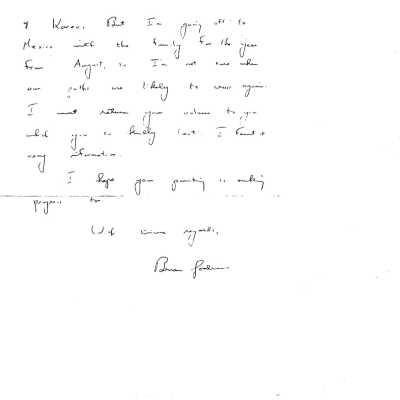 Korea. But I'm going off to
Mexico with the family for the year
from August, so I'm not sure when
our paths are likely to cross again.
I must return your volume to you
which you so kindly lent. I found it
very informative.
I hope your painting is making
progress too
With sincere regards,